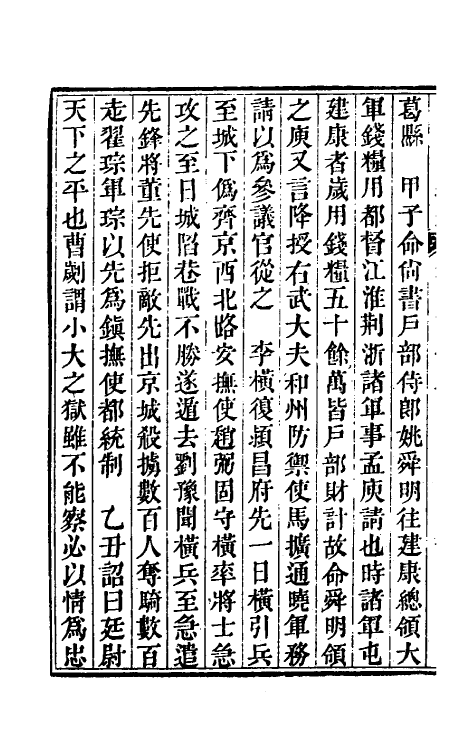 葛縣　甲子命尚書戶部侍郎姚舜明往建康總領大
軍錢糧用都督江淮荆浙諸軍事孟庾請也時諸軍屯
建康者歲用錢糧五十餘萬皆戶部財計故命舜明領
之庾又言降授右武大夫和州防禦使馬擴通曉軍務
請以爲參議官從之　李橫復潁昌府先一日橫引兵
至城下僞齊京西北路安撫使趙弼固守橫率將士急
攻之至日城陷巷戰不勝遂遁去劉豫聞橫兵至急遣
先鋒將董先使拒敵先出京城殺擄數百人奪騎數百
走翟琮軍琮以先爲鎭撫使都統制　乙丑詔曰廷尉
天下之平也曹劌謂小大之獄雖不能察必以情爲忠